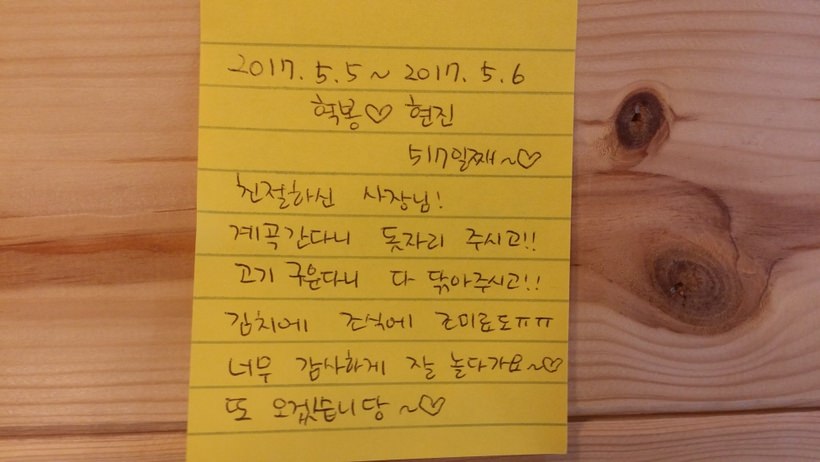 2017. 5.5 ~ 2017. 5.6
혁봉♡ 현진
517일째~♡
친절하신 사장님!
계곡간다니 돗자리 주시고!!
고기 구운다니 다 닦아주시고!!
김치에 조식에 조미료도ㅠㅠ
너무 감사하게 잘 놀다가요~♡
또 오겠습니당 ~♡